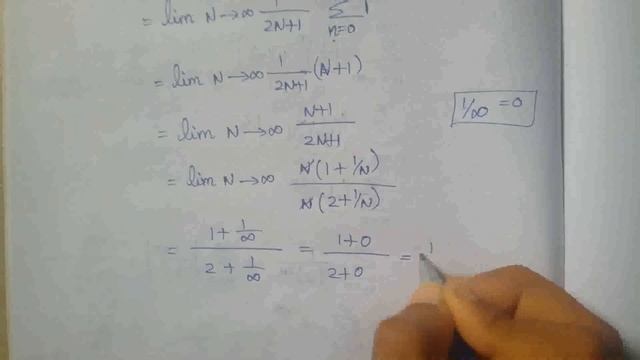 = lim N→∞ 1/2N+1 Σ n=0 1
= lim N→∞ 1/2N+1 (N+1)
= lim N→∞ N+1/2N+1
1/∞ = 0
= lim N→∞ N(1+1/N)/N(2+1/N)
= 1+1/∞ / 2+1/∞ = 1+0/2+0 = 1